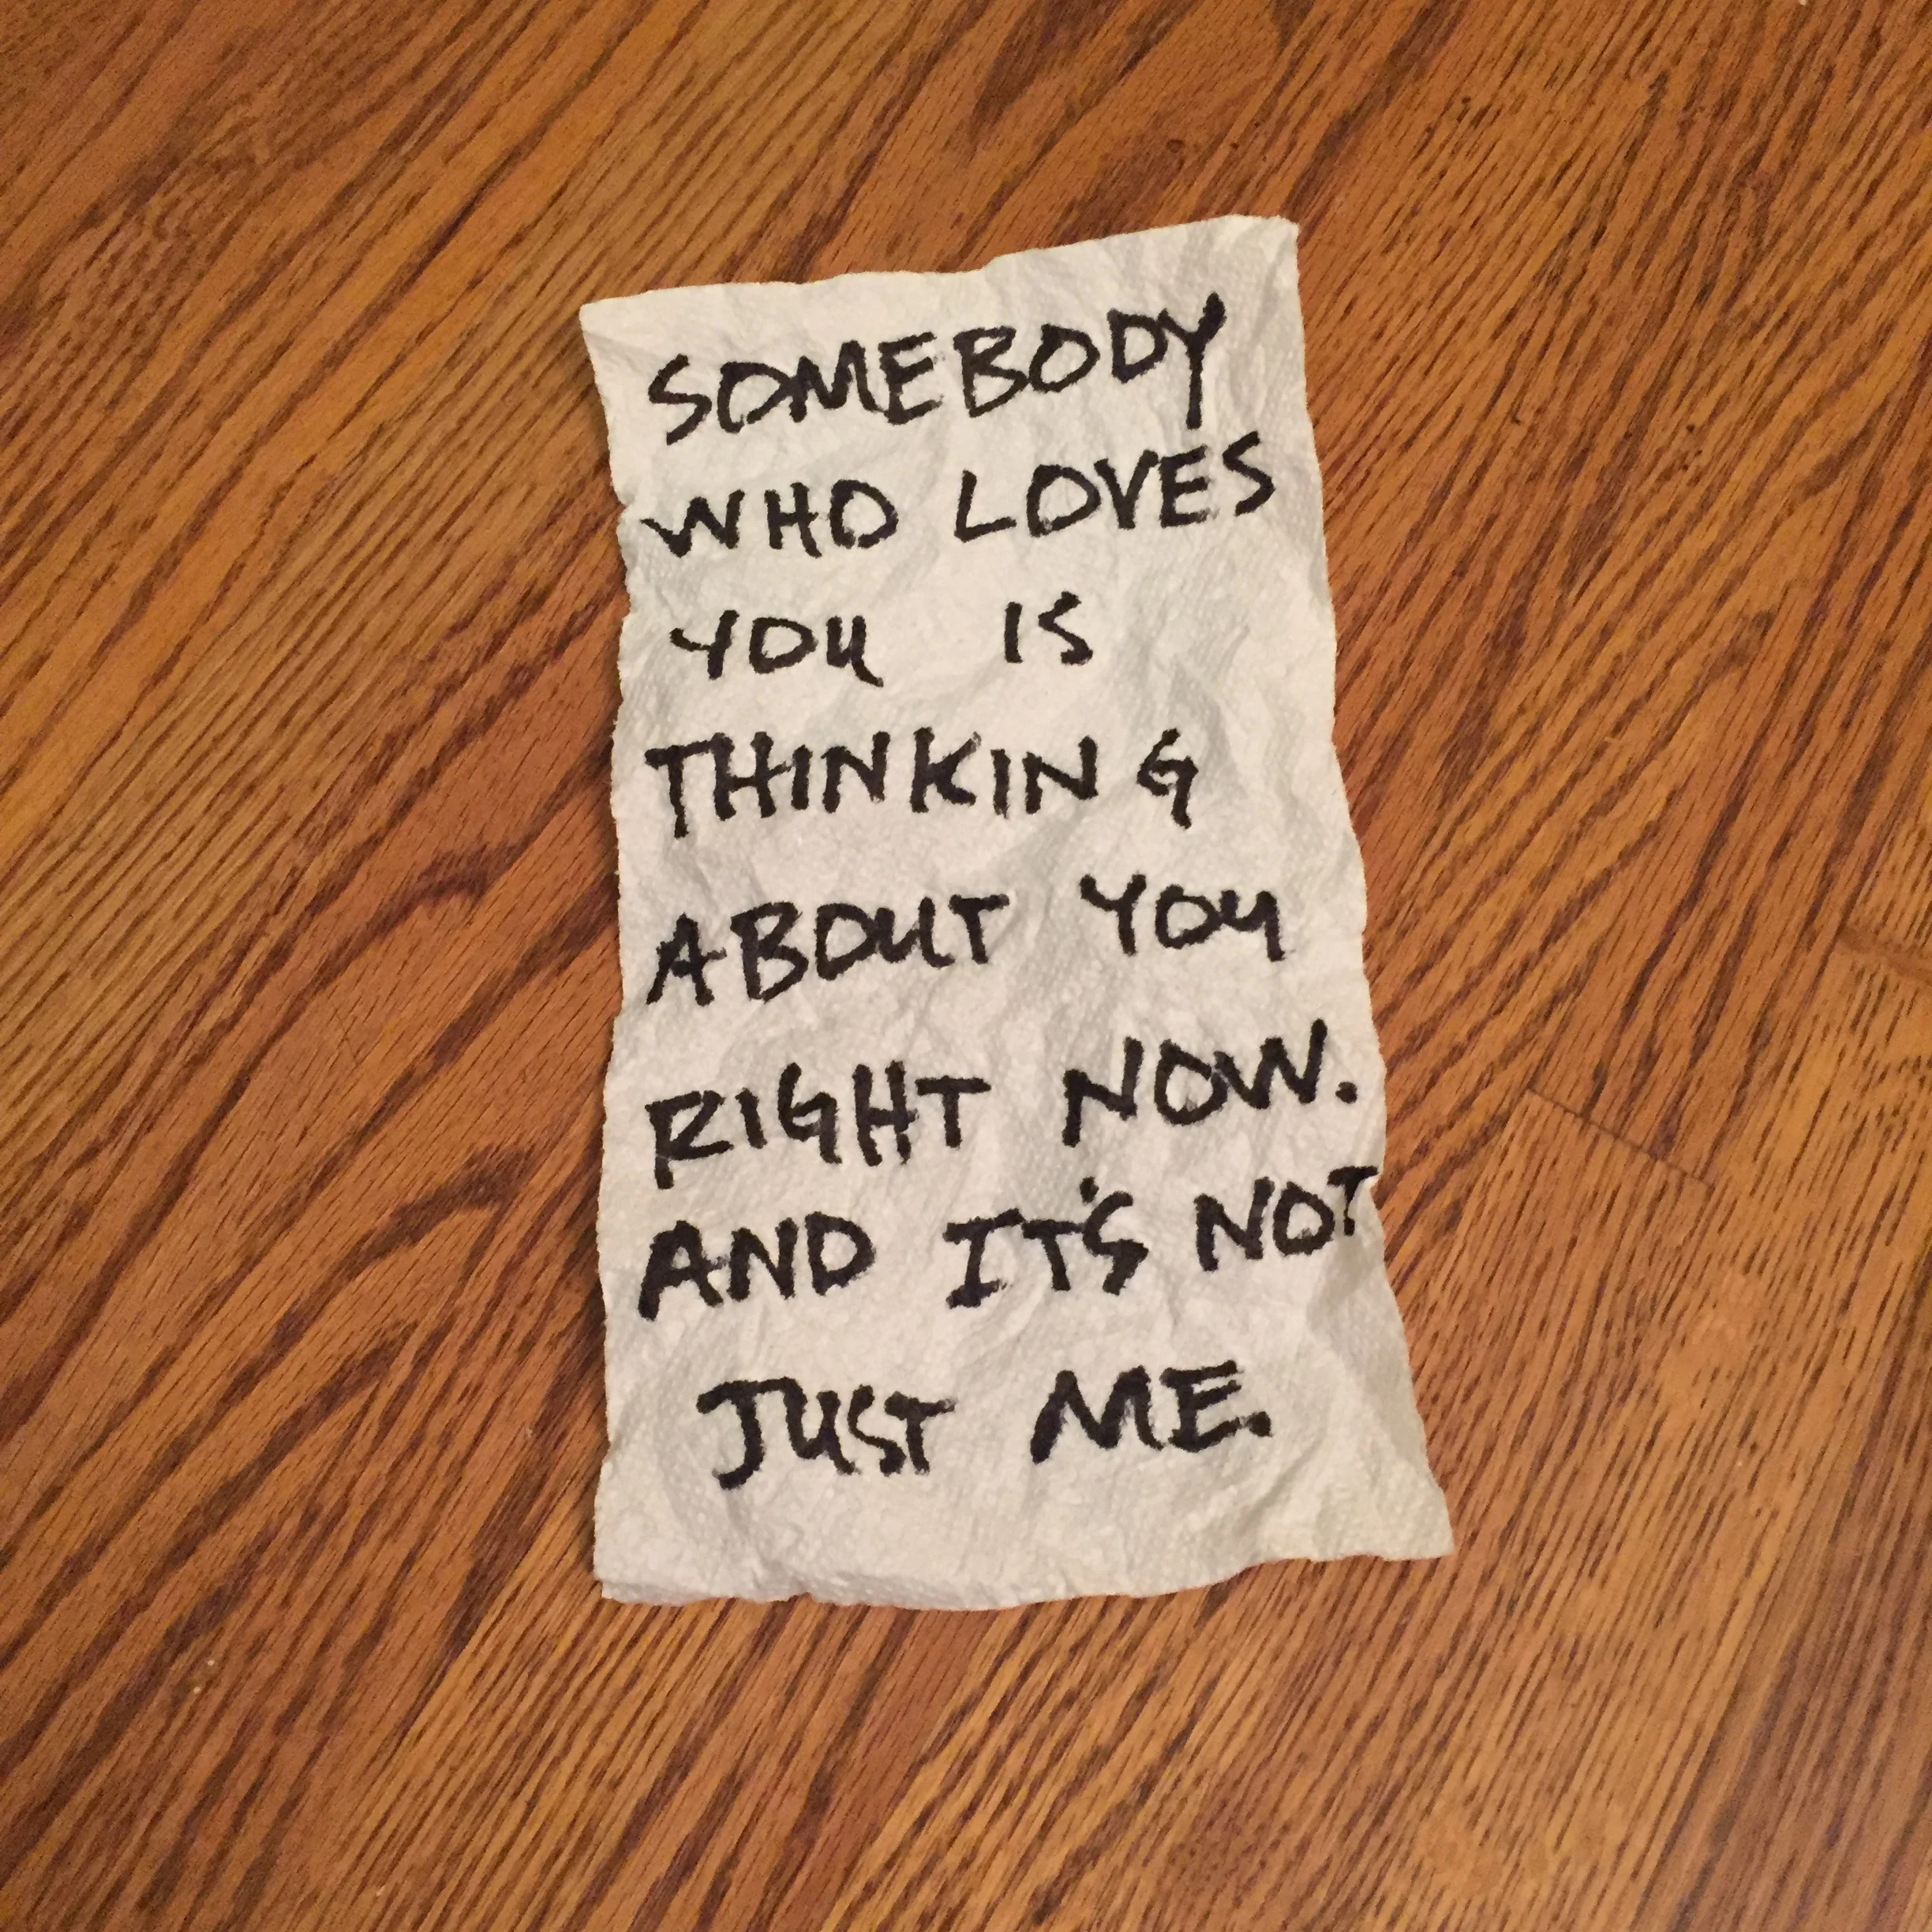 SOMEBODY
WHO LOVES
YOU IS
THINKING
ABOUT YOU
RIGHT NOW.
AND IT'S NOT
JUST ME.